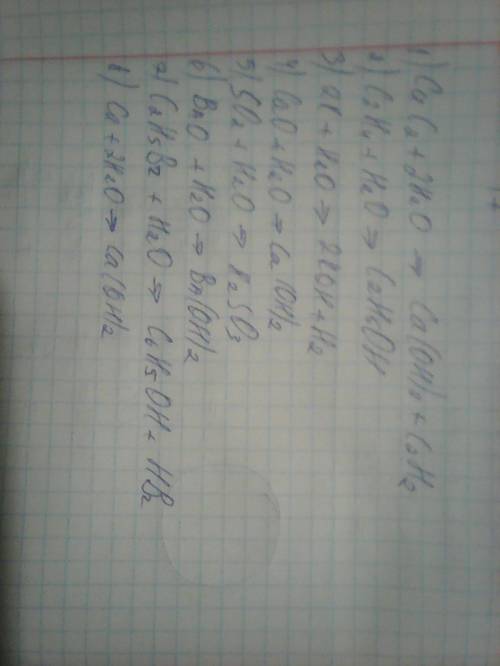 1) CaC2 + 2H2O → Ca(OH)2 + C2H2
2) C2H4 + H2O → C2H5OH
3) + H2O → + H2
4) CaO + H2O → Ca(OH)2
5) SO2 + H2O → H2SO3
6) BaO + H2O → Ba(OH)2
7) C2H5Br + H2O → C2H5OH + HBr
8) Ca + 2H2O → Ca(OH)2